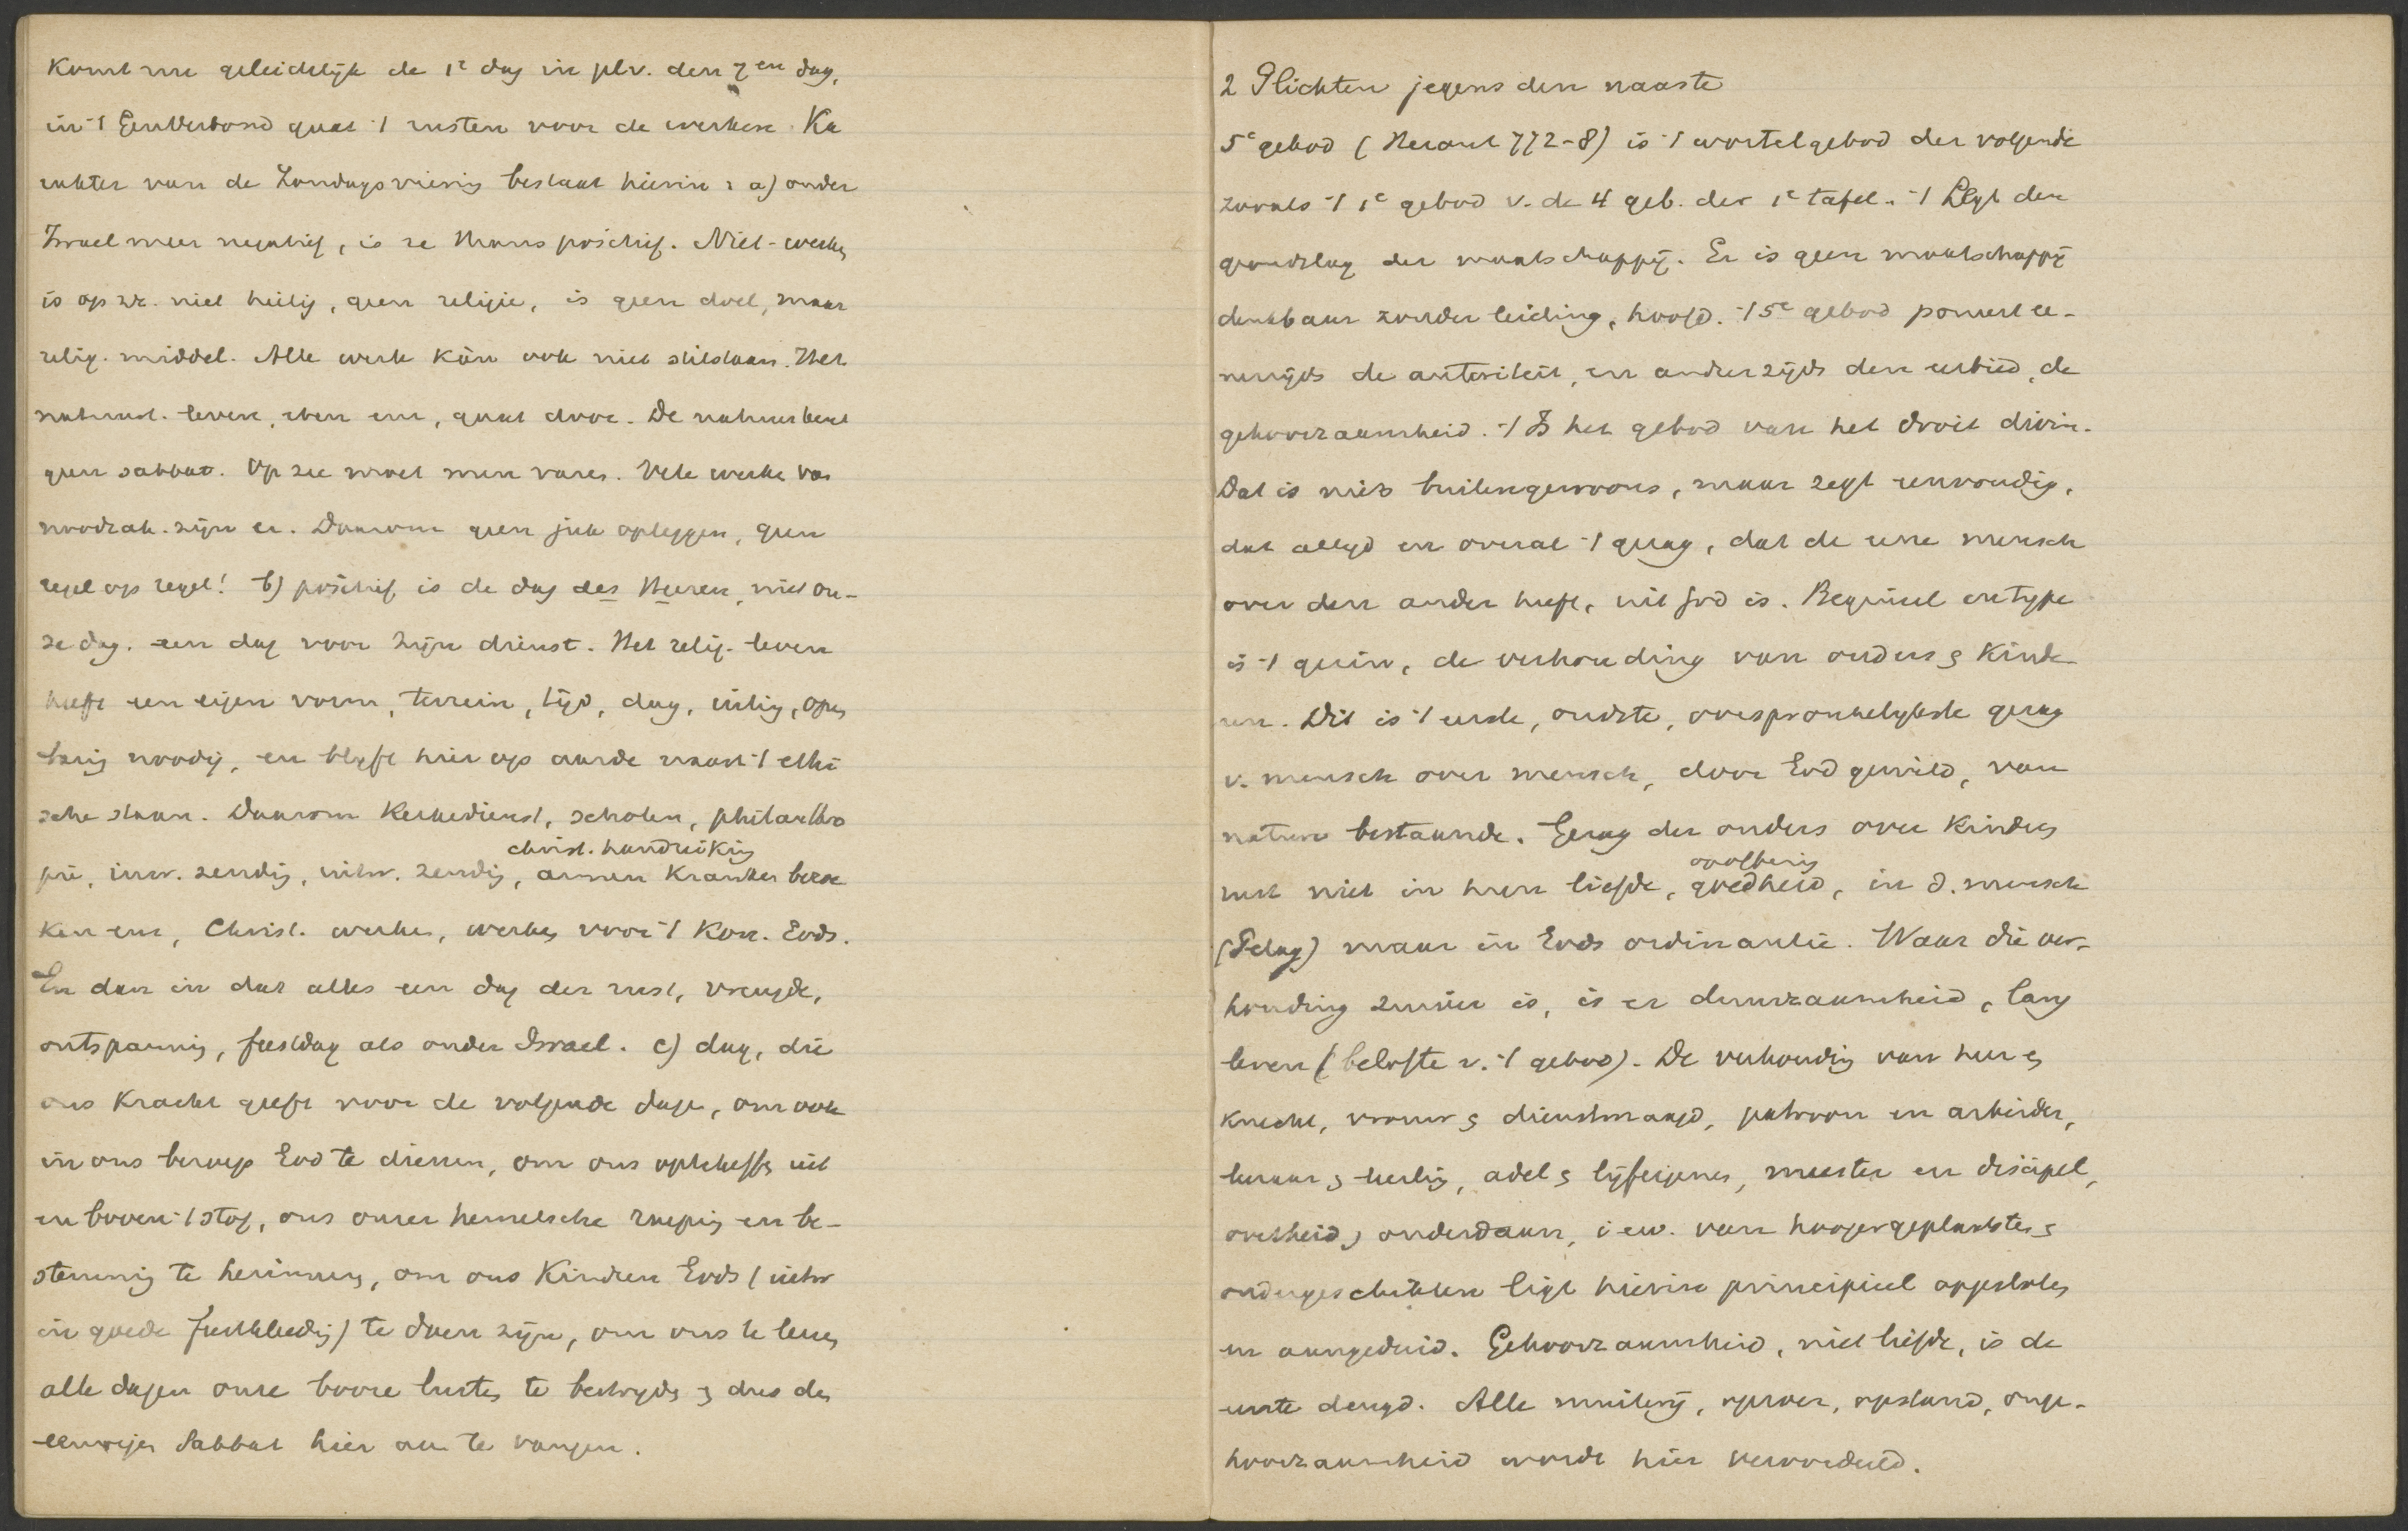 Komt nu geleidelijk de 1e dag in plv. den 7en dag,
in 't Genadeverbond gaat 't rusten voor de werken. Ka
rakter van de Zondagsviering bestaat hierin: a) onder
Israel meer negatief, is ze thans positief. Niet-werken
is op zr. niet heilig, geen religie, is geen doel, maar
relig. middel. Alle werk kán ook niet stilstaan. Het
natuurl. leven, eten enz, gaat door. De natuur kent
geen sabbat. Op zee moet men varen. Vele werken van
noodzak. zijn er. Daarom geen juk opleggen, geen
regel op regel! b) positief is de dag des Heeren, niet on-
ze dag. een dag voor Zijn dienst. Het relig. leven
heeft een eigen vorm, terrein, tijd, dag, uiting, open
baring noodig, en blijft hier op aarde naast 't ethi
sche staan. Daarom Kerkedienst, scholen, philanthro
christ. handreiking
pie, inw. zending, uitw. zending, armen Kranken bezoe
ken enz, Christ. werken, werken voor 't Kon. Gods.
En dan in dat alles een dag der rust, vreugde,
ontspanning, feestdag als onder Israel. c) dag, die
ons Kracht geeft voor de volgende dagen, om ook
in ons beroep God te dienen, om ons opteheffen uit
en boven 't stof, ons onzer hemelsche roeping en be-
stemming te herinneren, om ons Kinderen Gods (uitw
in goede feestkleeding) te doen zijn, om ons te leeren
alle dagen onze booze lusten te bestrijden en dus den
eeuwigen Sabbat hier aan te vangen.
2 Plichten jegens den naaste
5e gebod (Heraut 772-8) is 't wortelgebod der volgende
zooals 't 1e gebod v. de 4 geb. der 1e tafel. 't Legt den
grondslag der maatschappij. Er is geen maatschappij
denkbaar zonder leiding, hoofd. 't 5e gebod poneert ee-
nerzijds de autoriteit, en anderzijds den eerbied, de
gehoorzaamheid. 't Is het gebod van het droit divin.
Dat is niets buitengewoons, maar zegt eenvoudig,
dat altijd en overal 't gezag, dat de eene mensch
over den ander heeft, uit God is. Beginsel en type
is 't gezin, de verhouding van ouders en Kinde-
ren. Dit is 't eerste, oudste, oorspronkelijkste gezag
v. mensch over mensch, door God gewild, van
nature bestaande. Gezag der ouders over Kinderen
opoffering
rust niet in hun liefde, goedheid, in d. mensch
(Pelag) maar in Gods ordinantie. Waar die ver-
houding zuiver is, is er duurzaamheid, lang
leven (belofte v. 't gebod). De verhouding van heer en
knecht, vrouw en dienstmaagd, patroon en arbeider,
leeraar en leerling, adel en lijfeigenen, meester en discipel,
overheid en onderdaan, i.e.w. van hoogergeplaatsten en
ondergeschikten ligt hierin principieel opgesloten
en aangeduid. Gehoorzaamheid, niet liefde, is de
eerste deugd. Alle muiterij, oproer, opstand, onge-
hoorzaamheid wordt hier veroordeeld.